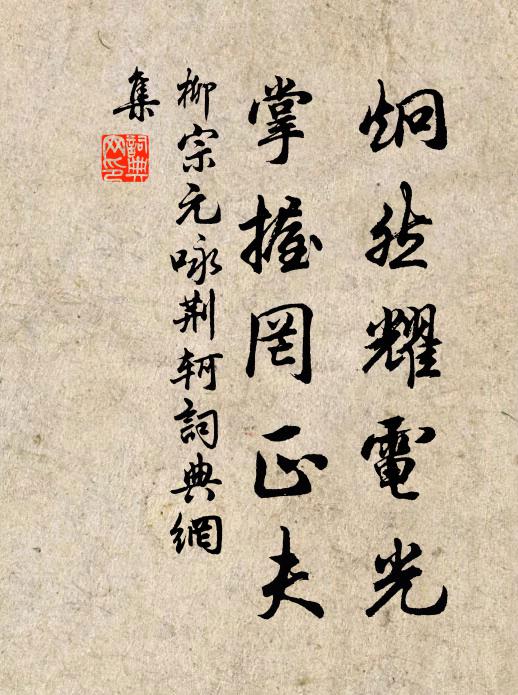 炯然耀電光
掌握罔正夫
柳宗元咏荆軻詞典網
集
詞典
网印